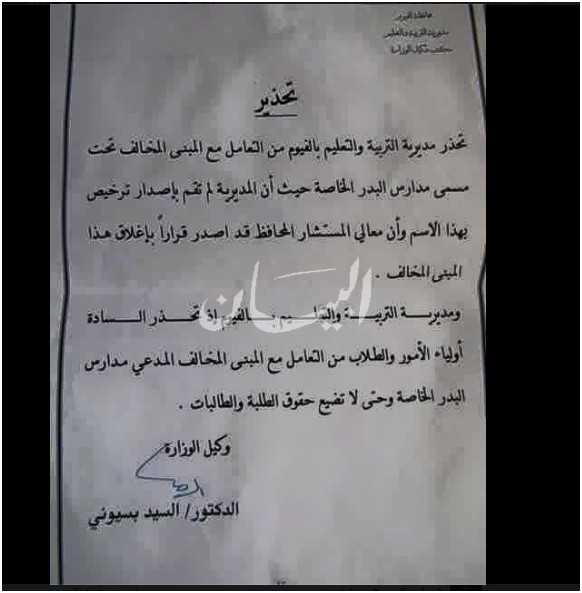 محافظة الفيوم
مديرية التربية والتعليم
مكتب وكيل الوزارة
تحذير
تحذر مديرية التربية والتعليم بالفيوم من التعامل مع المبنى المخالف تحت
مسمى مدارس البدر الخاصة حيث أن المديرية لم تقم بإصدار ترخيص
بهذا الاسم وأن معالي المستشار المحافظ قد اصدر قراراً بإغلاق هذا
المبنى المخالف .
البيان
ومديرية التربية والتعليم بالفيوم إذ تحذر السادة
أولياء الأمور والطلاب من التعامل مع المبنى المخالف المدعي مدارس
البدر الخاصة وحتى لا تضيع حقوق الطلبة والطالبات .
وكيل الوزارة
الدكتور/ السيد بسيوني